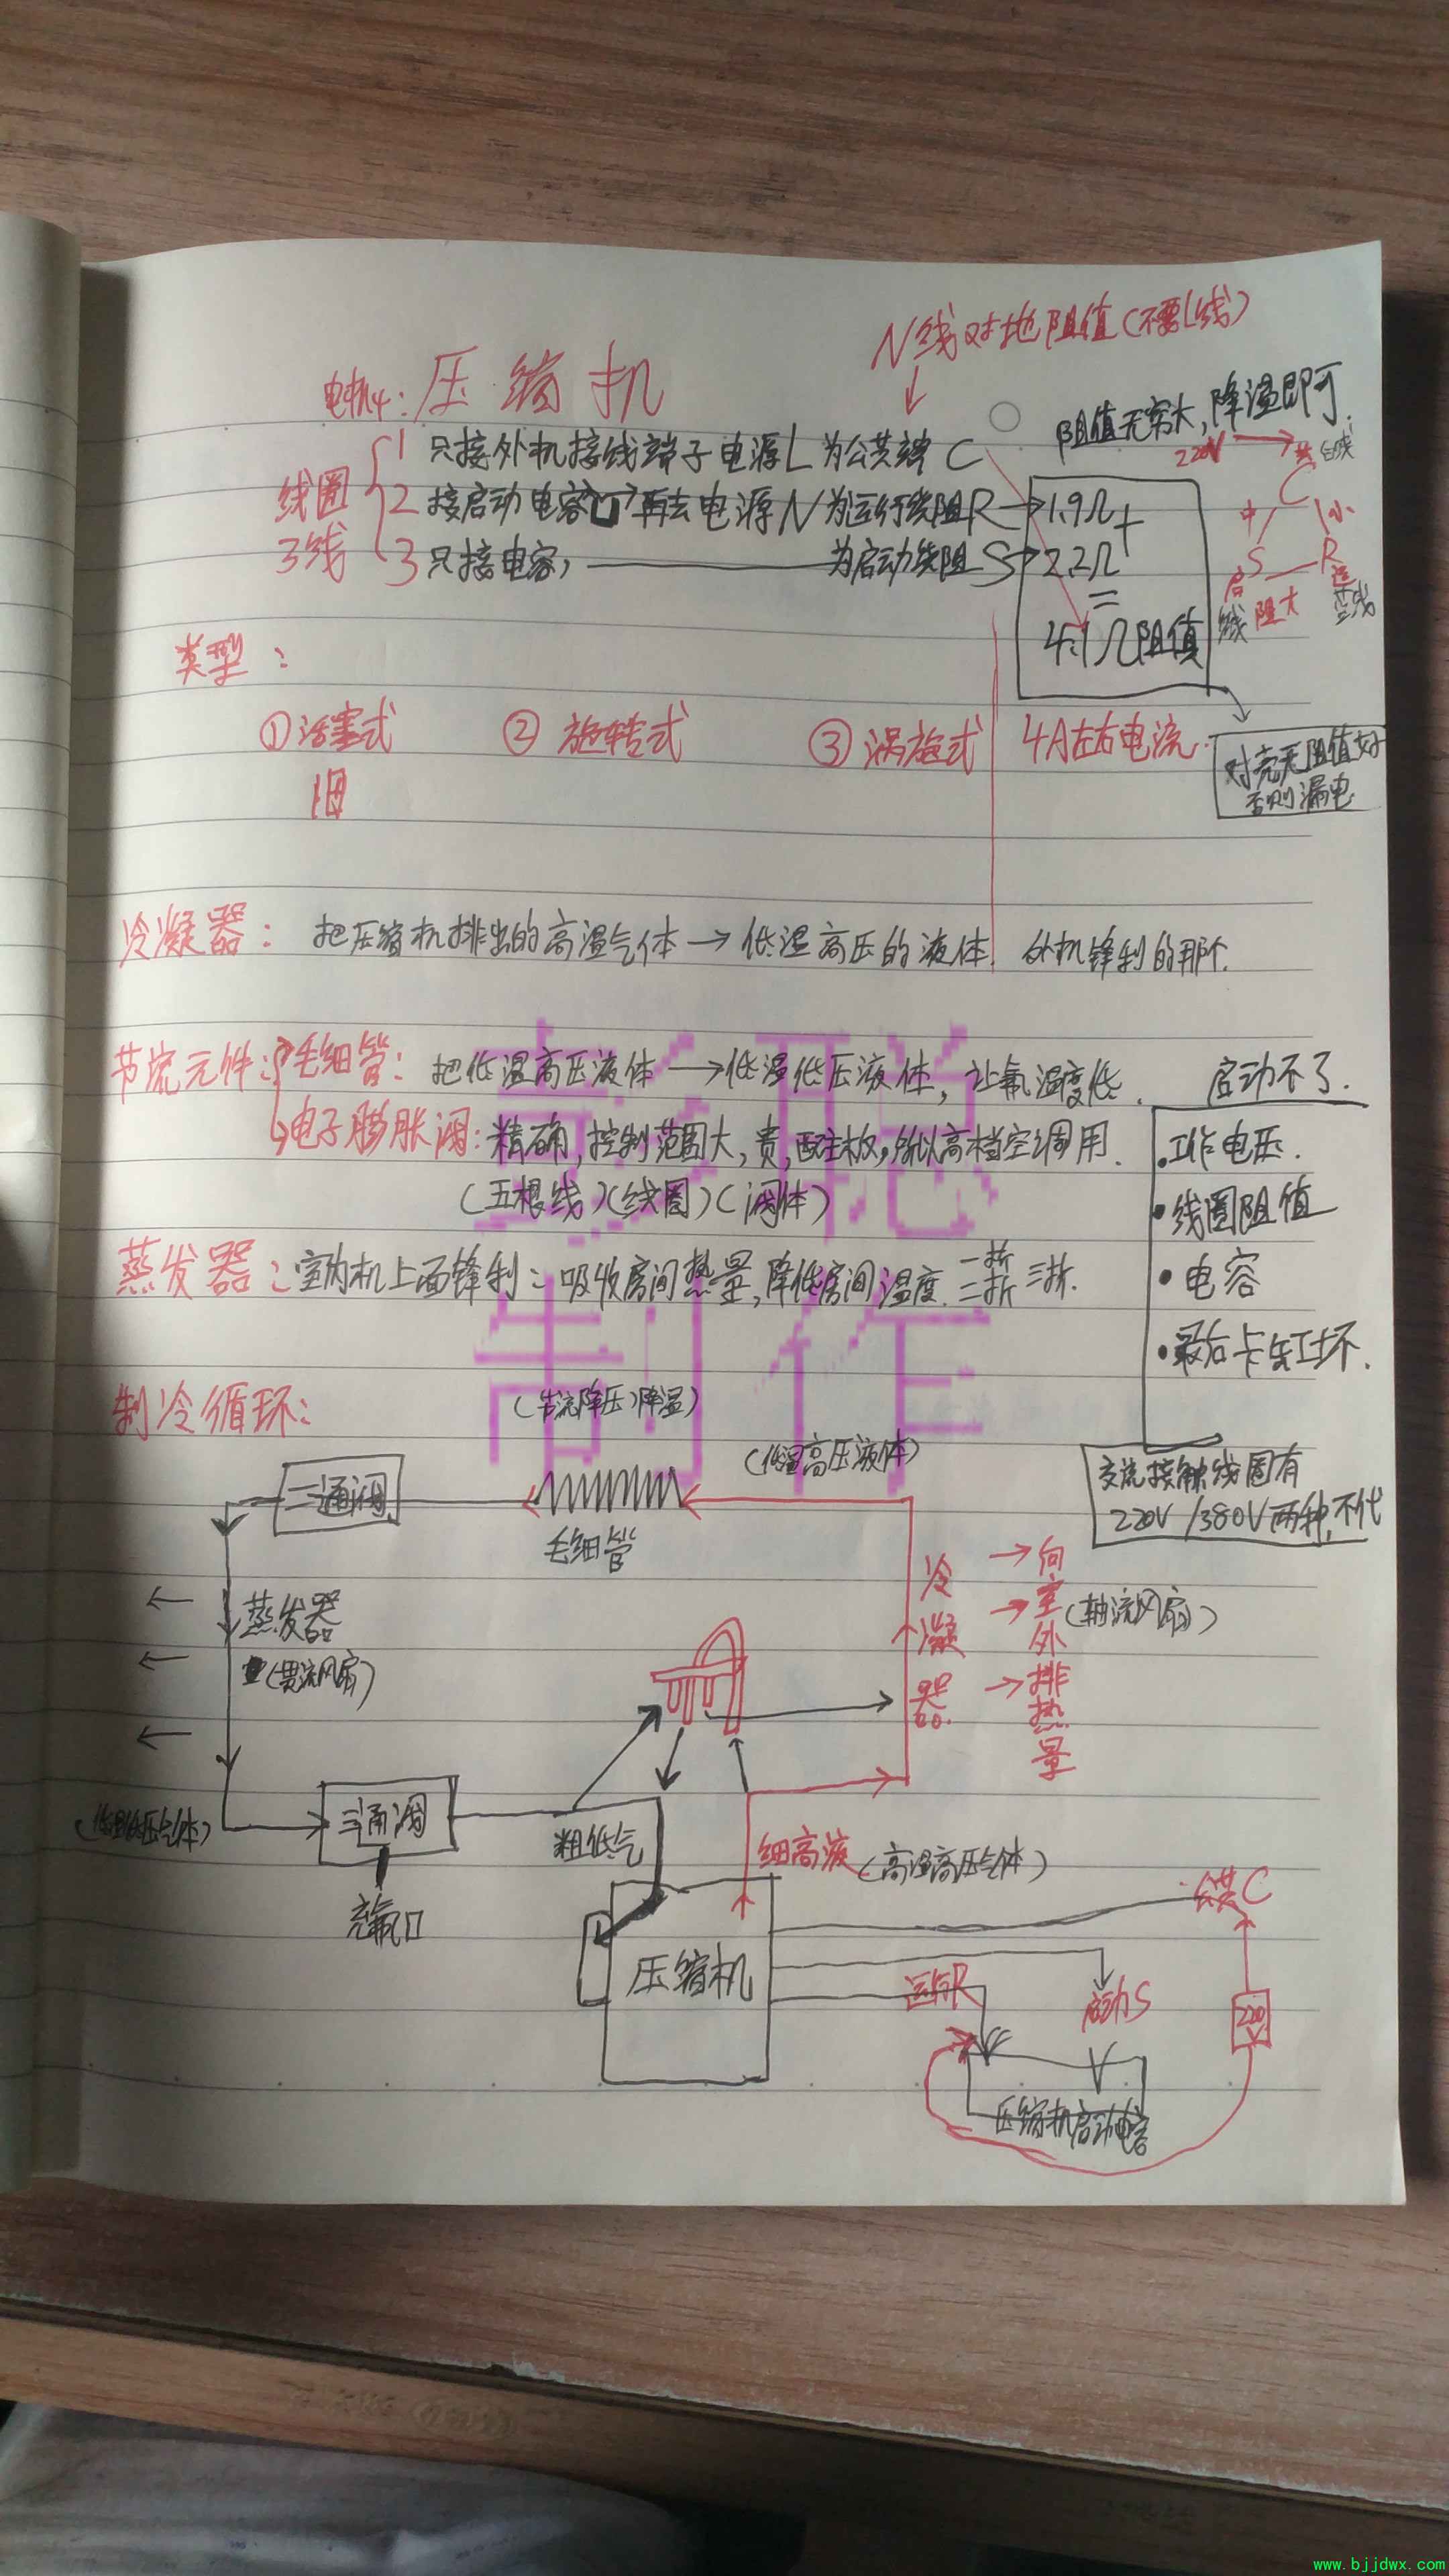 N线对地阻值(不要L线)
电机4:压缩机
阻值无穷大,降温即可.
220V
线圈
3线
1 只接外机接线端子电源L为公共端 C
2 接启动电容 再去电源N为运行线阻R→1.9Ω+
3 只接电容, 为启动线阻 S→2.2Ω
=
4.1Ω阻值
C
中 小
S R
启 阻大
类型:
①活塞式 ②旋转式 ③涡旋式 4A左右电流.
旧
对壳无阻值好
否则漏电
冷凝器: 把压缩机排出的高温气体→低温高压的液体. 外机锋利的那个.
节流元件: 毛细管: 把低温高压液体→低温低压液体, 让氟温度低.
启动不了.
电子膨胀阀: 精确,控制范围大,贵,配主板,所以高档空调用.
(五根线)(线圈)(阀体)
•工作电压.
•线圈阻值
•电容
•最后卡缸坏.
蒸发器:室内机上面锋利:吸收房间热量,降低房间温度. 一折 二折 三折.
制冷循环:
(节流降压)降温)
(低温高压液体)
交流接触线圈有
220V/380V两种,不代
二通阀
毛细管
蒸发器
(贯流风扇)
冷凝器
→向室外排热量
(轴流风扇)
三通阀
(低温低压气体)
粗低气
细高液(高温高压气体)
充氟口
压缩机
公共C
运行R
启动S
220V
压缩机启动电容
高聪
制作
www.bjjdwx.com